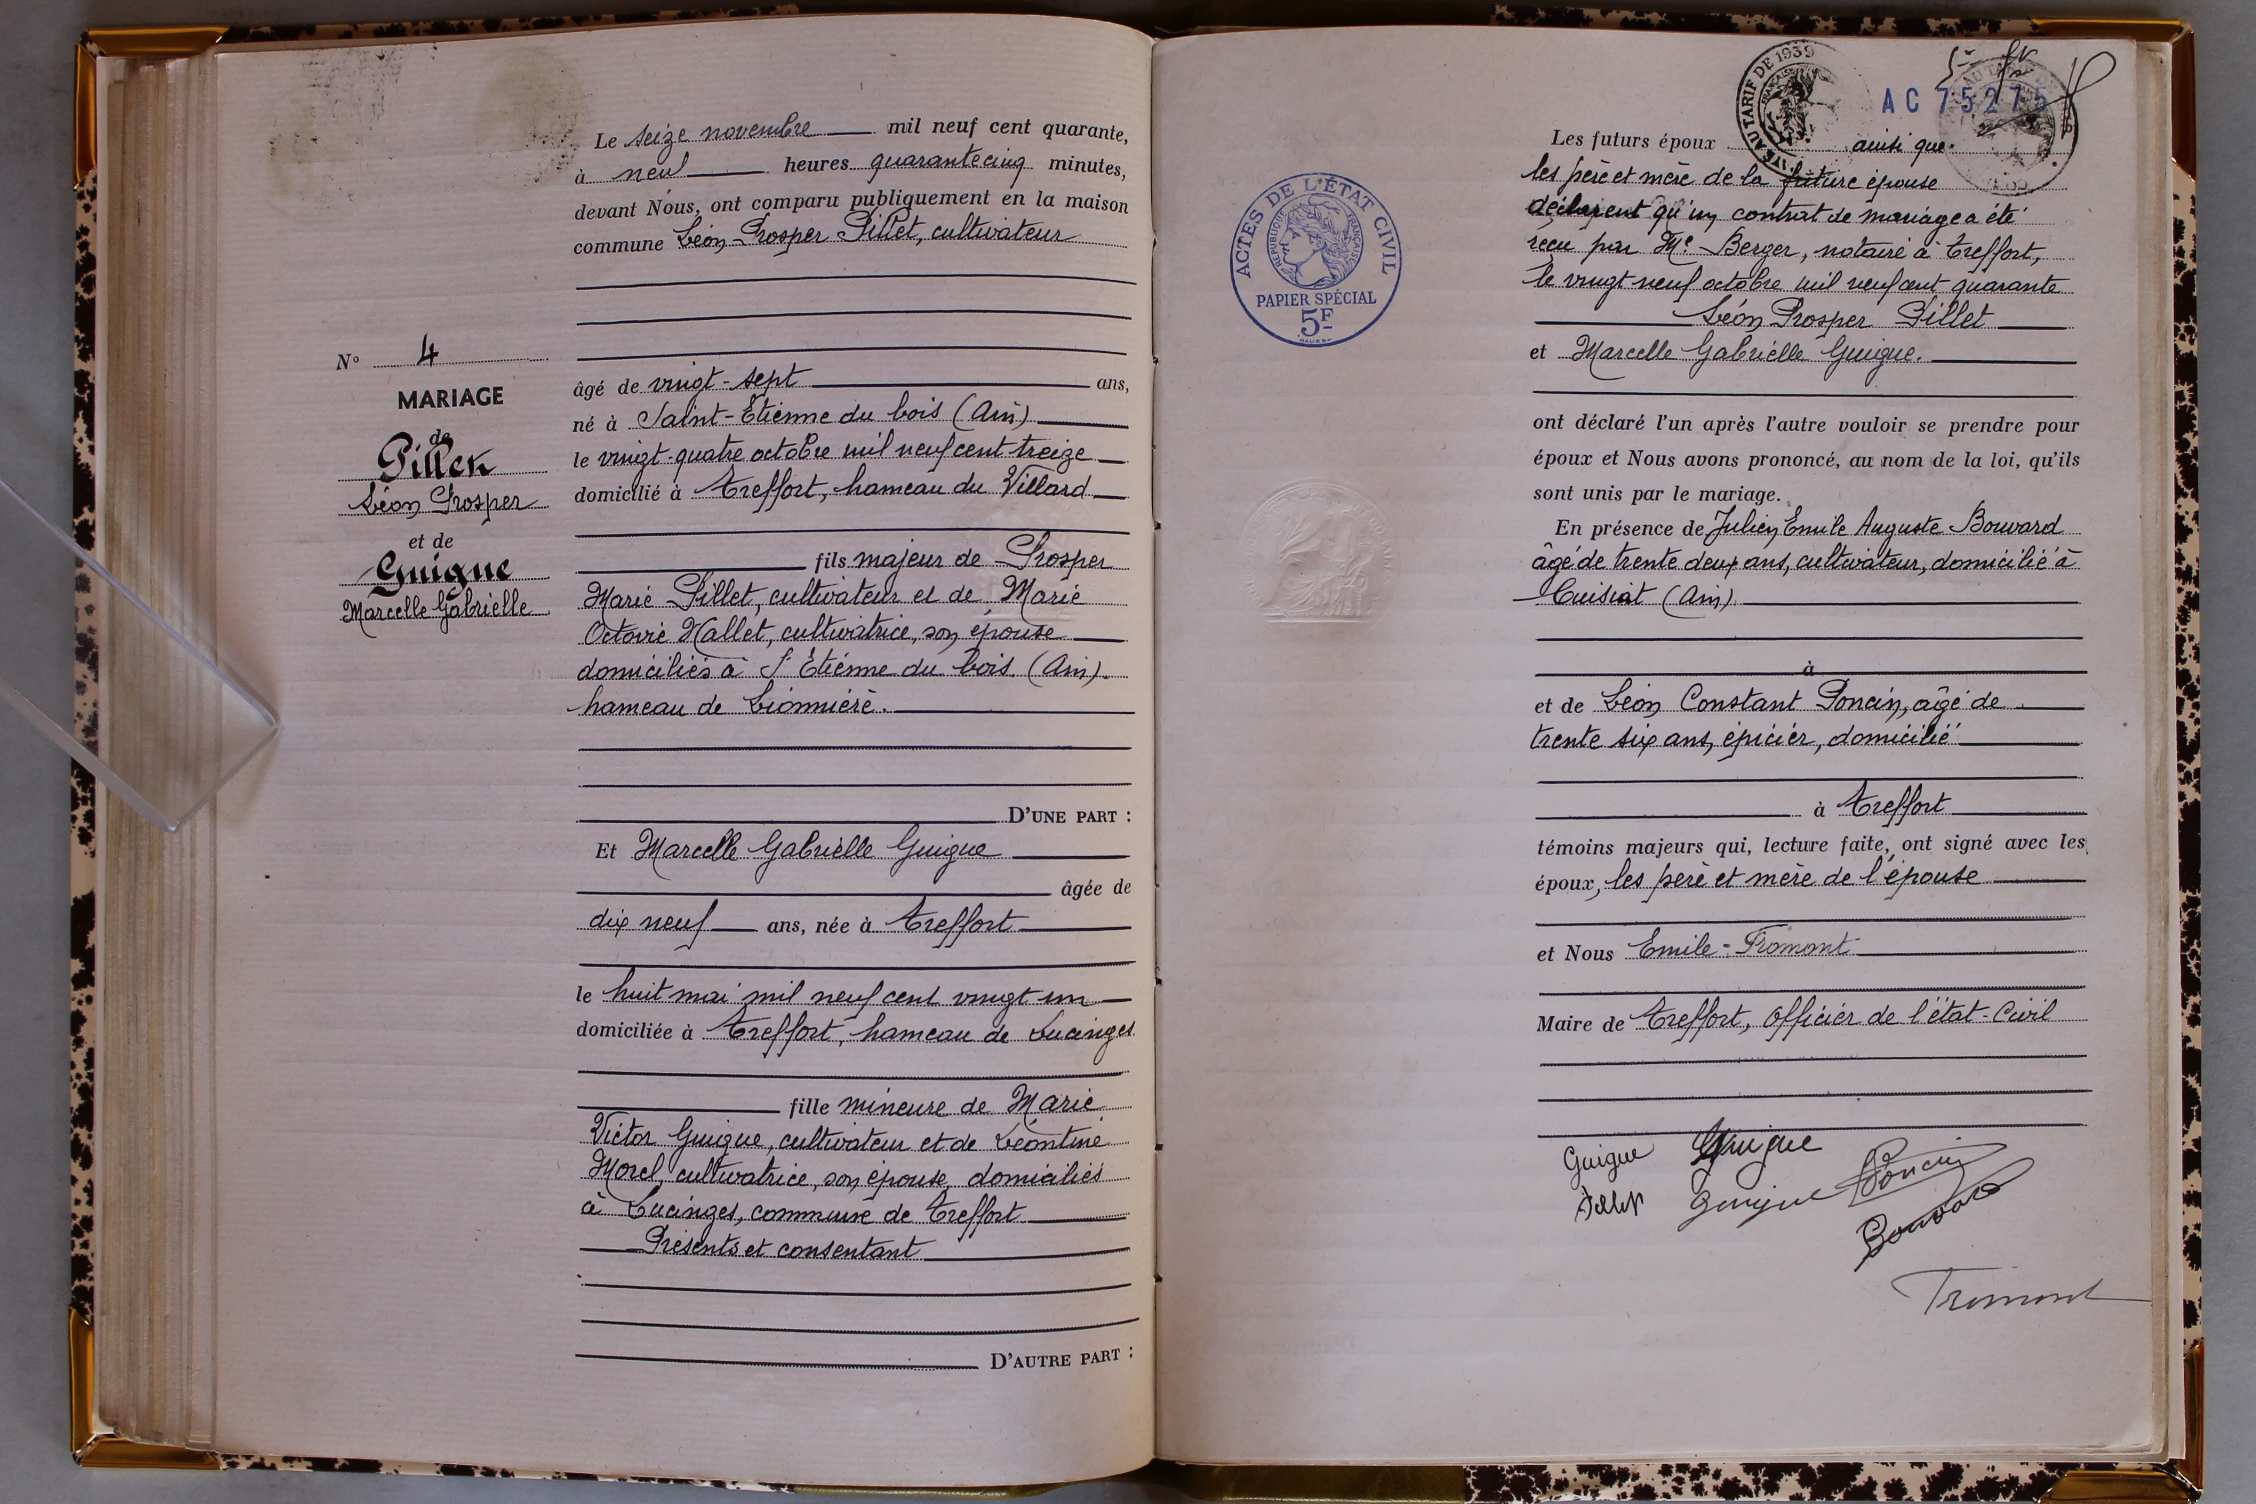 N° 4
MARIAGE
de
Pillet
Léon Prosper
et de
Guigue
Marcelle Gabrielle
Le seize novembre mil neuf cent quarante,
à neuf heures quarante cinq minutes,
devant Nous, ont comparu publiquement en la maison
commune Léon Prosper Pillet, cultivateur
âgé de vingt-sept ans,
né à Saint-Etienne du bois (Ain)
le vingt-quatre octobre mil neuf cent treize
domicilié à Treffort, hameau du Villard
fils majeur de Prosper
Marie Pillet, cultivateur et de Marie
Octavie Hallet, cultivatrice, son épouse
domiciliés à St Etienne du bois (Ain).
hameau de Lionnière.
D'UNE PART :
Et Marcelle Gabrielle Guigue
âgée de
dix neuf ans, née à Treffort
le huit mai mil neuf cent vingt un
domiciliée à Treffort, hameau de Lucinges
fille mineure de Marie
Victor Guigue, cultivateur et de Léontine
Morel, cultivatrice, son épouse, domiciliés
à Lucinges, commune de Treffort
Présents et consentant
D'AUTRE PART :
PAYÉ AU TARIF DE 1939
AC 75275
ACTES DE L'ÉTAT CIVIL
RÉPUBLIQUE FRANÇAISE
PAPIER SPÉCIAL
5F
Les futurs époux ainsi que
les père et mère de la future épouse
déclarent qu'un contrat de mariage a été
reçu par Me Berger, notaire à Treffort,
le vingt neuf octobre mil neuf cent quarante
Léon Prosper Pillet
et Marcelle Gabrielle Guigue.
ont déclaré l'un après l'autre vouloir se prendre pour
époux et Nous avons prononcé, au nom de la loi, qu'ils
sont unis par le mariage.
En présence de Julien Emile Auguste Bouvard
âgé de trente deux ans, cultivateur, domicilié à
Cuisiat (Ain)
à
et de Léon Constant Poncin, âgé de
trente six ans, épicier, domicilié
à Treffort
témoins majeurs qui, lecture faite, ont signé avec les
époux, les père et mère de l'épouse
et Nous Emile Tromont
Maire de Treffort, officier de l'état-Civil
Guigue Guigue Poncin
Pillet Guigue
Bouvard
Tromont